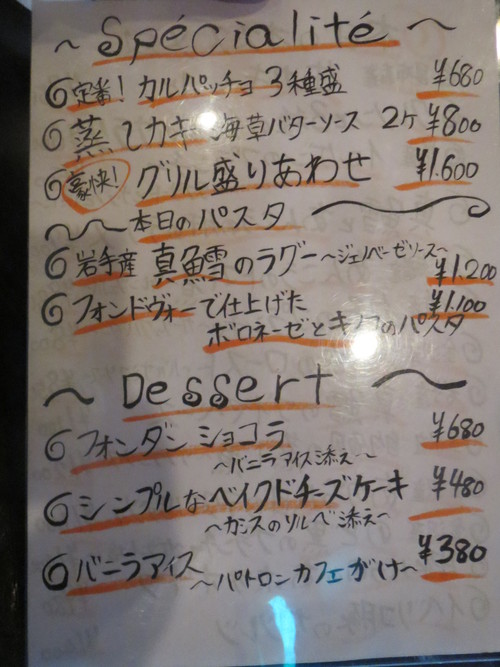 ～ Spécialité ～
定番！ カルパッチョ 3種盛 ¥680
蒸しカキ 海草バターソース 2ケ ¥800
豪快！ グリル盛りあわせ ¥1.600
～ 本日のパスタ ～
岩手産 真鱈のラグー ～ジェノベーゼソース～ ¥1.200
フォンドヴォーで仕上げた ¥1,100
ボロネーゼとキノコのパスタ
～ Dessert ～
フォンダン ショコラ ¥680
～バニラアイス添え～
シンプルなベイクドチーズケーキ ¥480
～カシスのソルベ添え～
バニラアイス ～パトロンカフェがけ～ ¥380